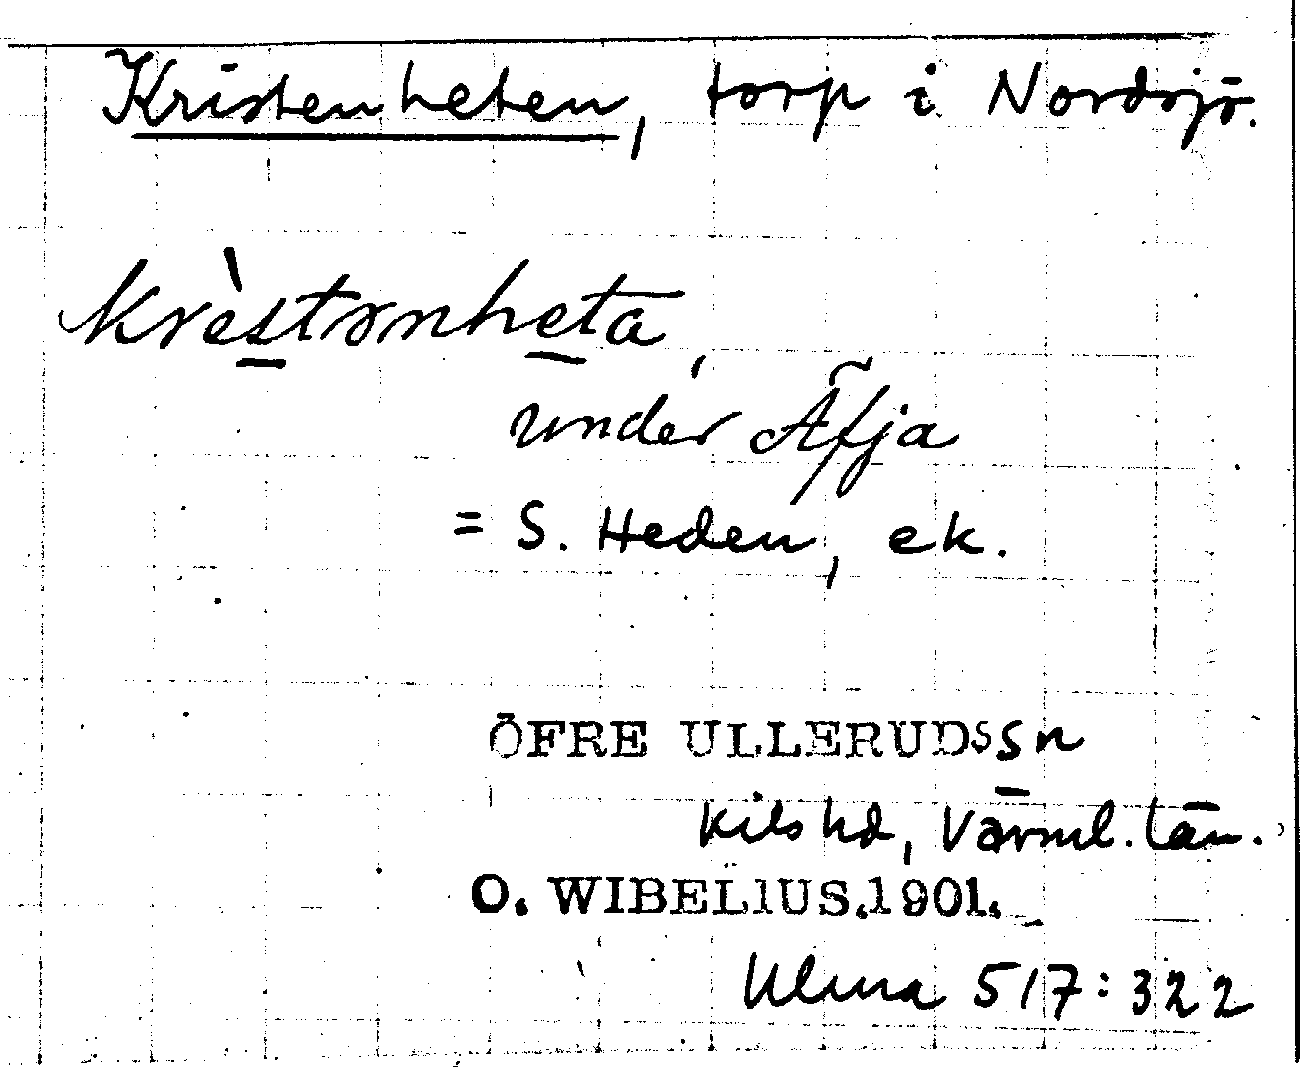 Kristenheten, torp i Nordsjö.
krèstɤnheta,
under Äfja
= S. Heden, ek.
ÖFRE ULLERUDS sn
Kils hd, Värml. län.
O. WIBELIUS.1901.
Ulma 517:322